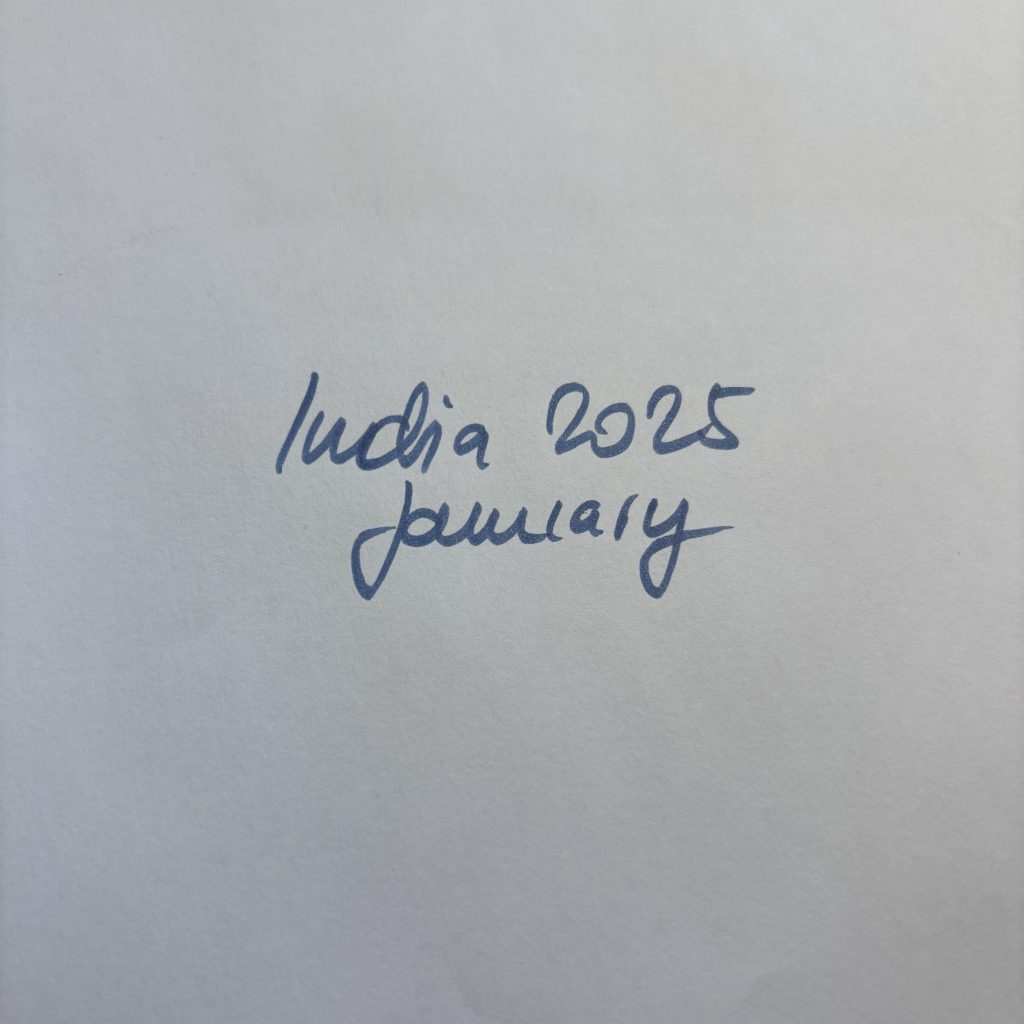 India 2025
january